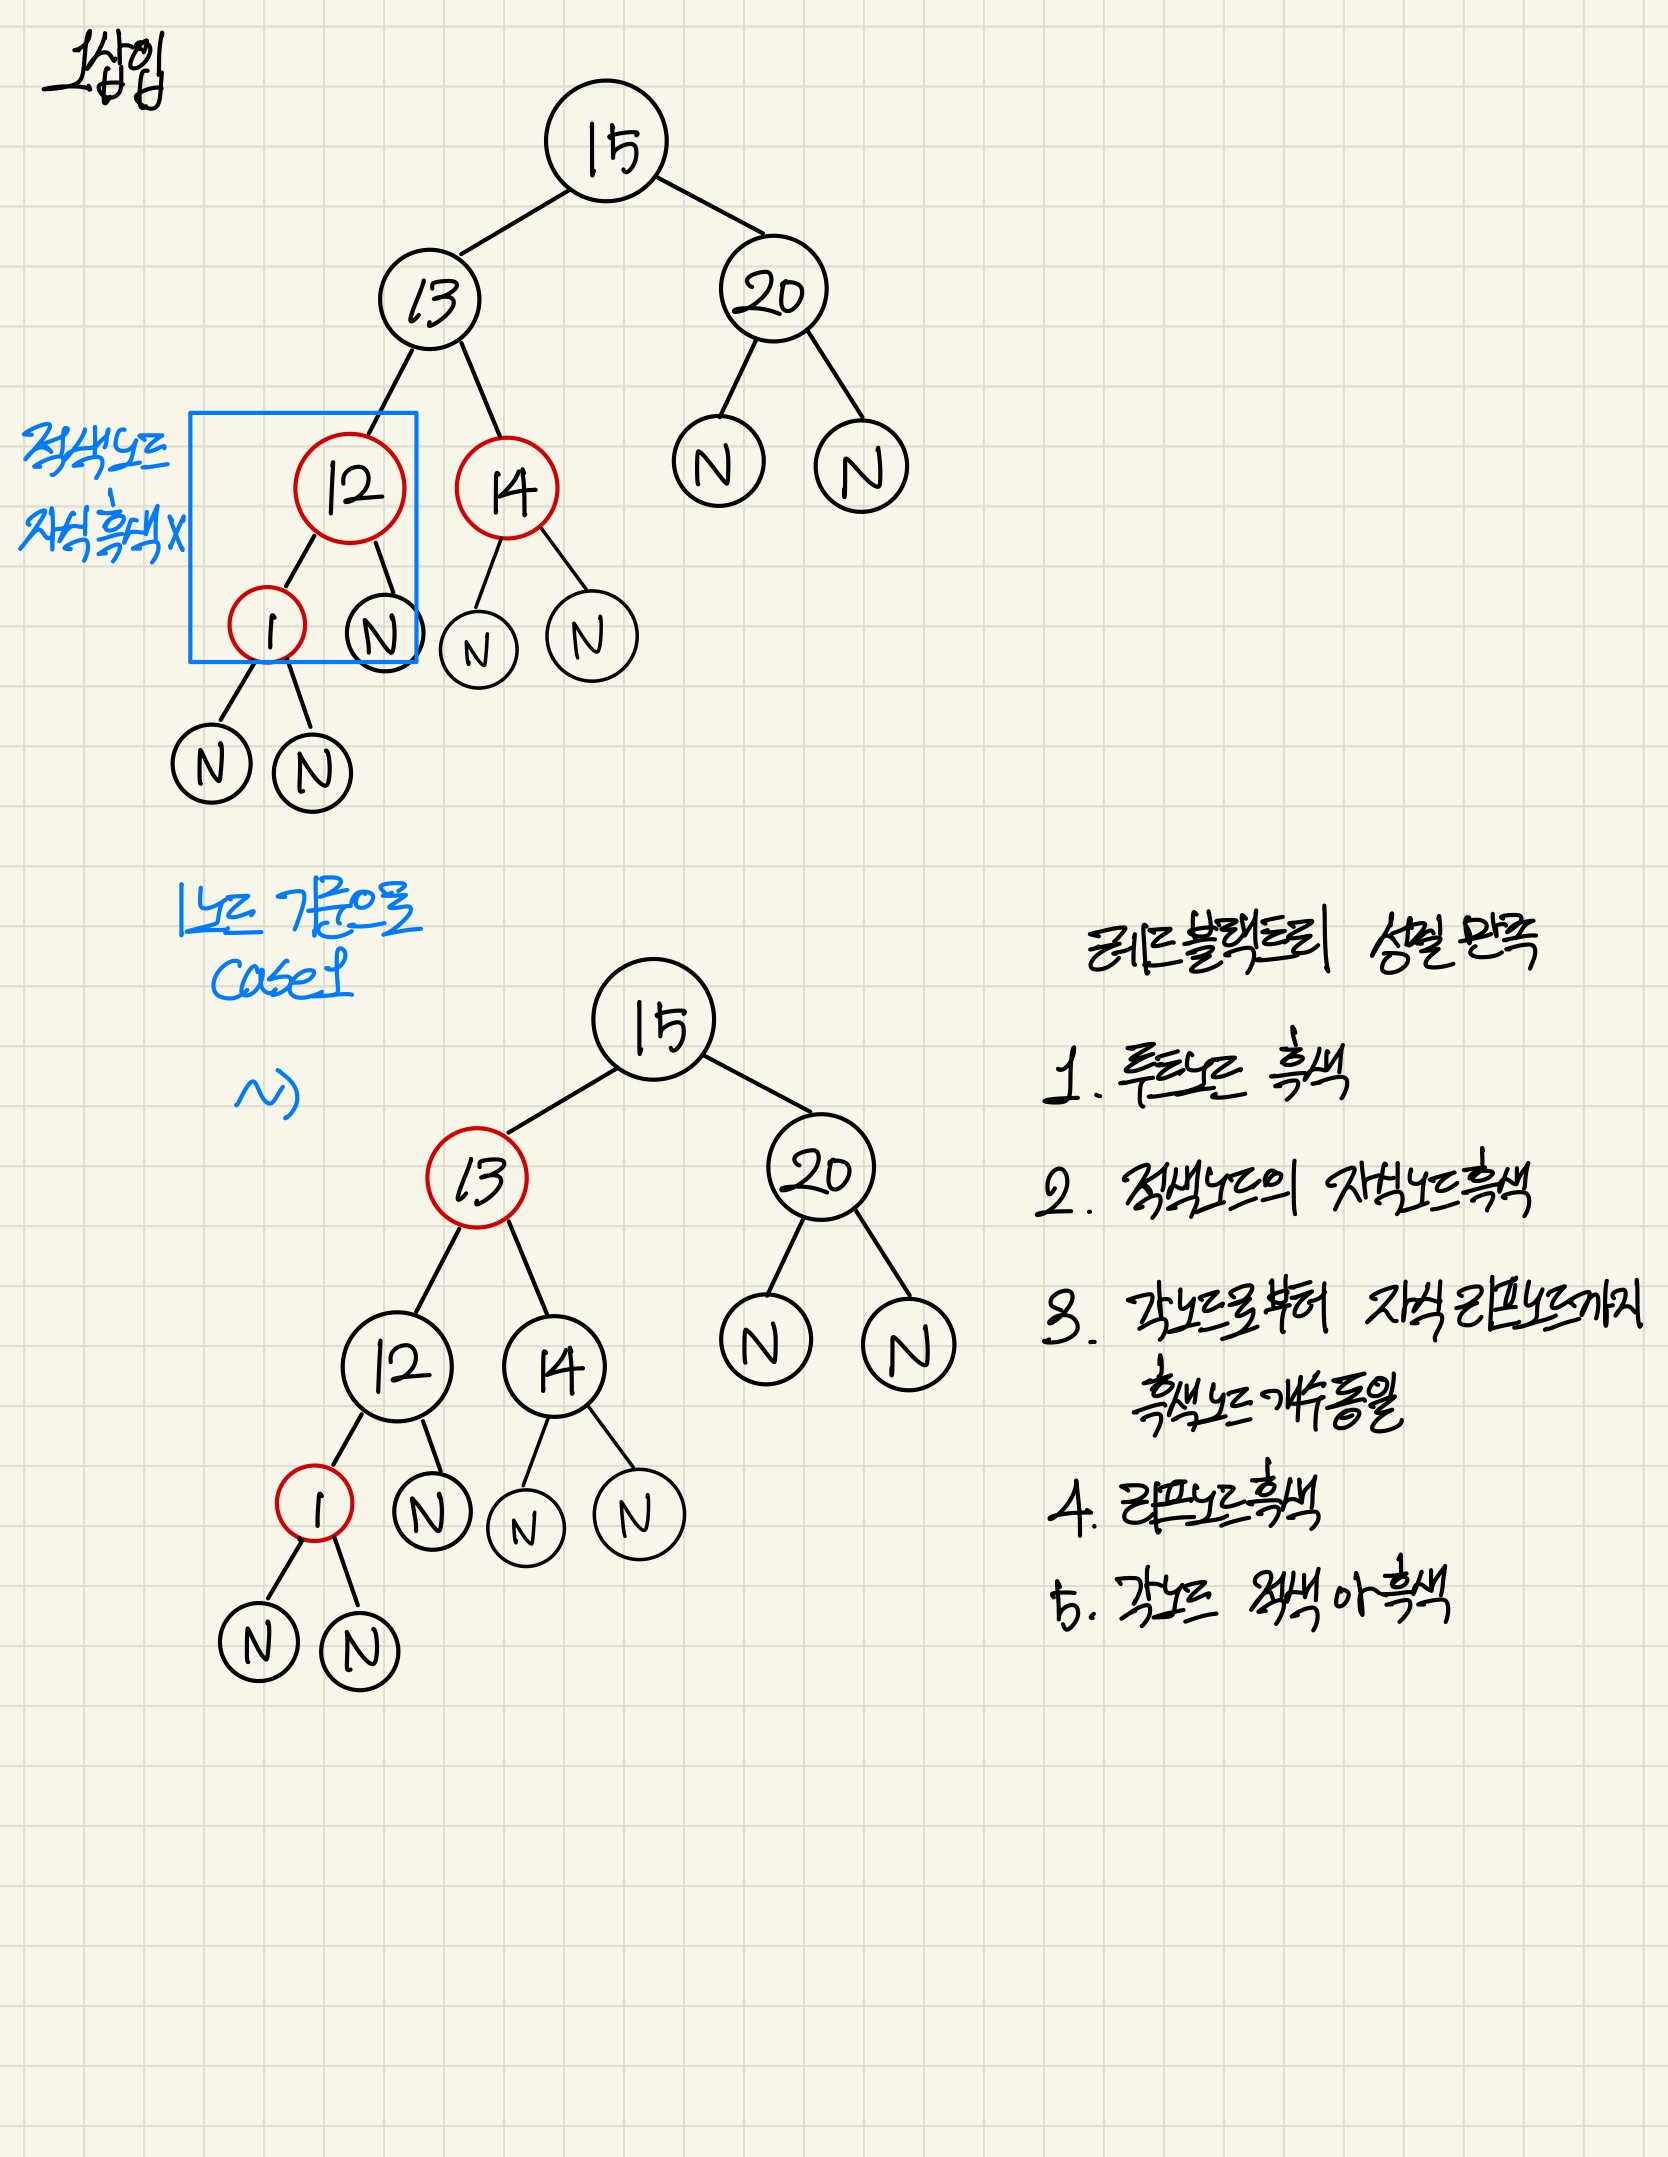 1삽입
15
13
20
적색노드
자식흑색X
12
14
N
N
1
N
N
N
N
N
1노드 기준으로
case1
~)
15
13
20
12
14
N
N
1
N
N
N
N
N
레드블랙트리 성질 만족
1. 루트노드 흑색
2. 적색노드의 자식노드흑색
3. 각노드로부터 자식리프노드까지
흑색노드개수동일
4. 리프노드흑색
5. 각노드 적색 or 흑색